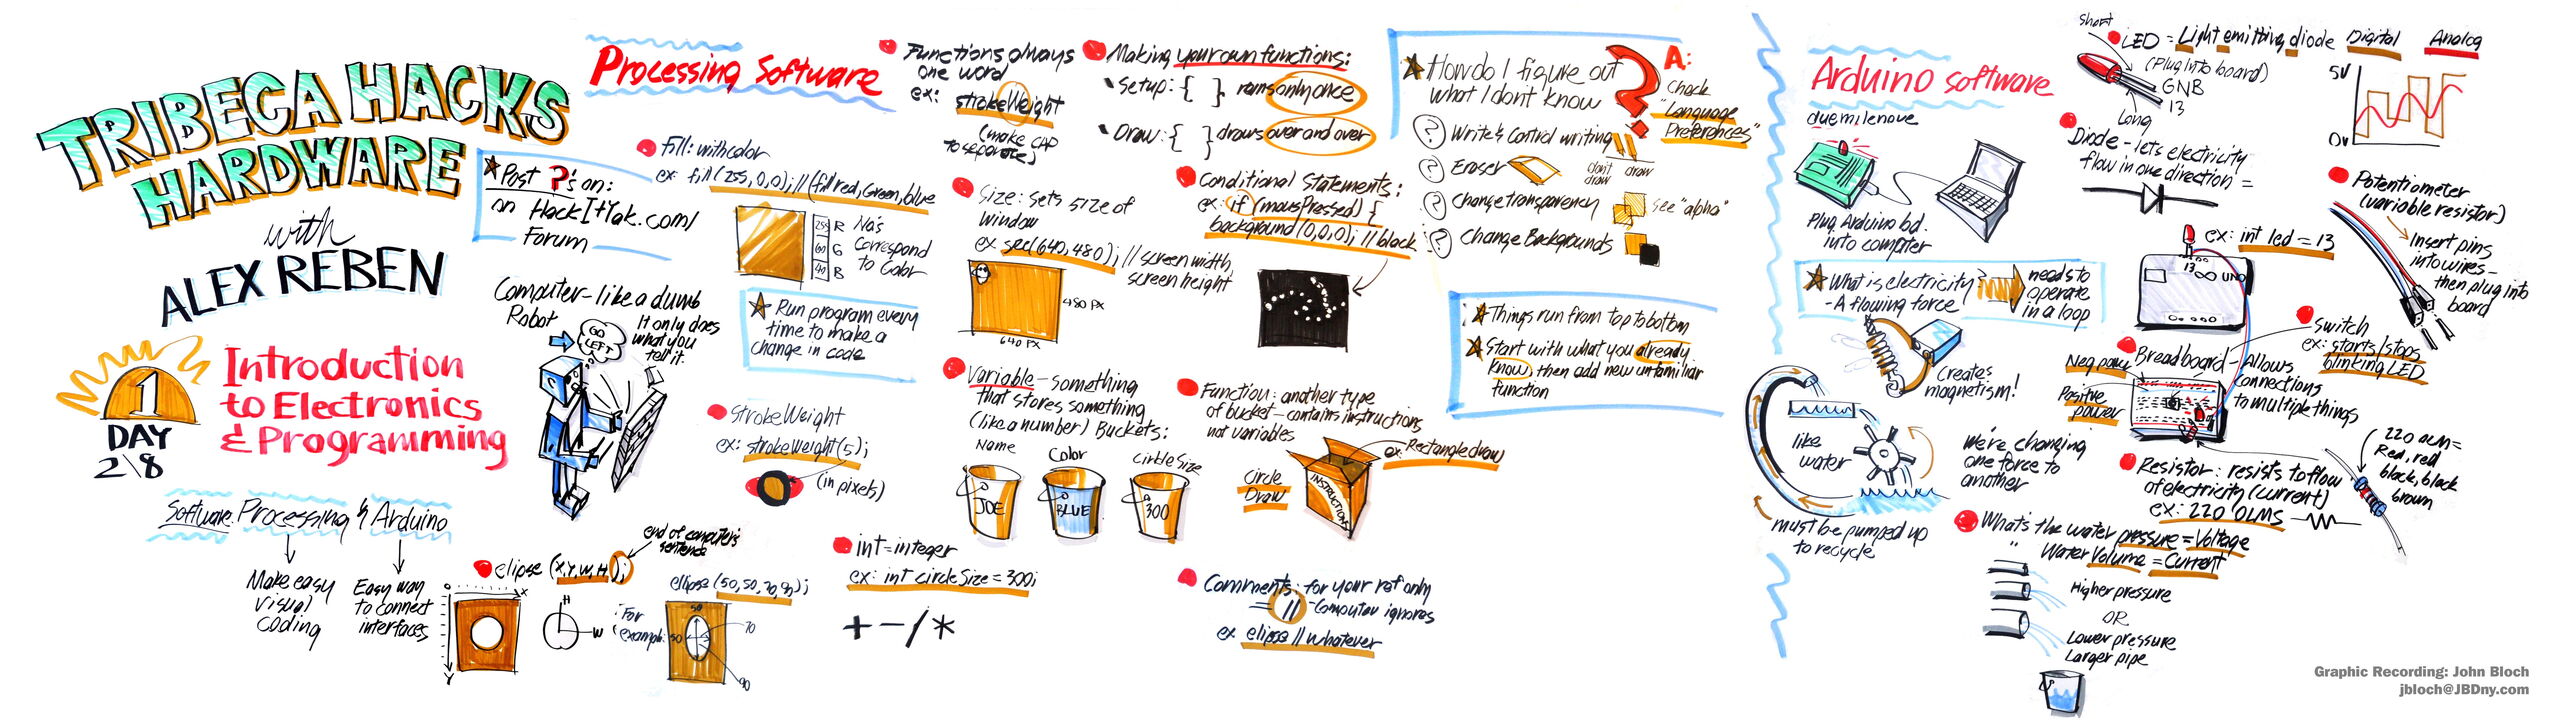 TRIBECA HACKS
HARDWARE
with
ALEX REBEN
1
DAY
2\8
Introduction
to Electronics
& Programming
Software: Processing & Arduino
Make easy
visual
coding
Easy way
to connect
interfaces
Processing Software
Post ?'s on:
on HackItYak.com/
Forum
Computer-like a dumb
Robot
It only does
what you
tell it.
GO
LEFT
elipse (X,Y,W,H);
end of computer's
sentence
X
Y
H
W
For
example:
ellipse (50,50,70,90);
50
50
70
90
Fill: with color
ex: fill (255,0,0); // (fill red, Green, blue
255 R
60 G
40 B
No's
Correspond
to Color
Run program every
time to make a
change in code
StrokeWeight
ex: strokeWeight(5);
(in pixels)
int=integer
ex: int circleSize = 300;
+ - / *
Functions always
one word
ex: strokeWeight
(make CAP
to separate)
Size: Sets size of
window
(640,480); // screen width
screen height
480 PX
640 PX
Variable - something
that stores something
(like a number) Buckets:
Name
Color
CirkleSize
JOE
BLUE
300
Making your own functions:
Setup: { } runs only once
Draw: { } draws over and over
Conditional Statements:
ex: if (mousPressed) {
background (0,0,0); // black
Function: another type
of bucket-contains instructions
not variables
Circle
Draw
ex: Rectangledraw
INSTRUCTIONS
Comments: for your ref only
= // -Computer ignores
ex elipse // whatever
How do I figure out
what I don't know
?
A:
Check
"Language
Preferences"
? Write & Control writing
don't
draw
draw
? Eraser
? Change transparency
See "alpha"
? Change Backgrounds
Things run from top to bottom
Start with what you already
know, then add new unfamiliar
function
Arduino software
duemilenove
Plug Arduino bd.
into computer
What is electricity?
- A flowing force
needs to
operate
in a loop
Creates
magnetism!
like
water
We're changing
one force to
another
must be pumped up
to recycle
What's the water pressure = Voltage
" Water Volume = Current
Higher pressure
OR
Lower pressure
Larger pipe
short
LED = Light emitting diode
(Plug into board)
GNB
13
Long
Diode - lets electricity
flow in one direction =
ex: int led = 13
13
UNO
Switch
ex: starts/stops
blinking LED
Breadboard - Allows
Connections
to multiple things
Positive
power
Resistor: resists to flow
of electricity (current)
ex: 220 OLMS
220 OLM=
Red, red
black, black
brown
Digital
Analog
5V
0V
Potentiometer
(variable resistor)
Insert pins
into wires-
then plug into
board
Graphic Recording: John Bloch
jbloch@JBDny.com